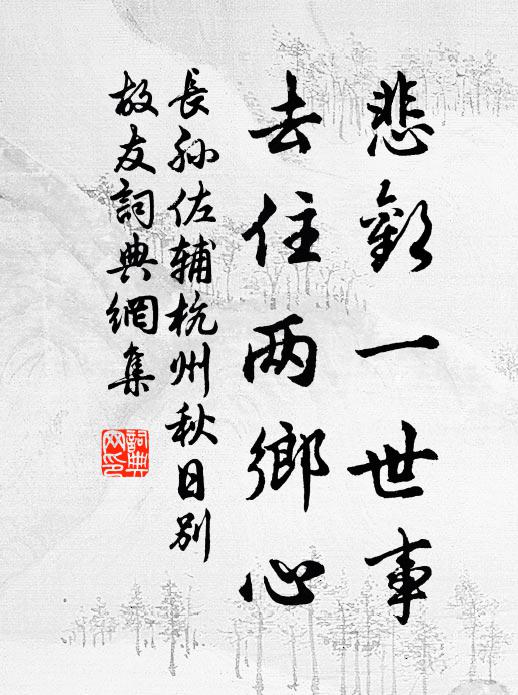 悲歡一世事
去住两鄉心
長孫佐輔杭州秋日别
故友詞典網集
詞典
网印